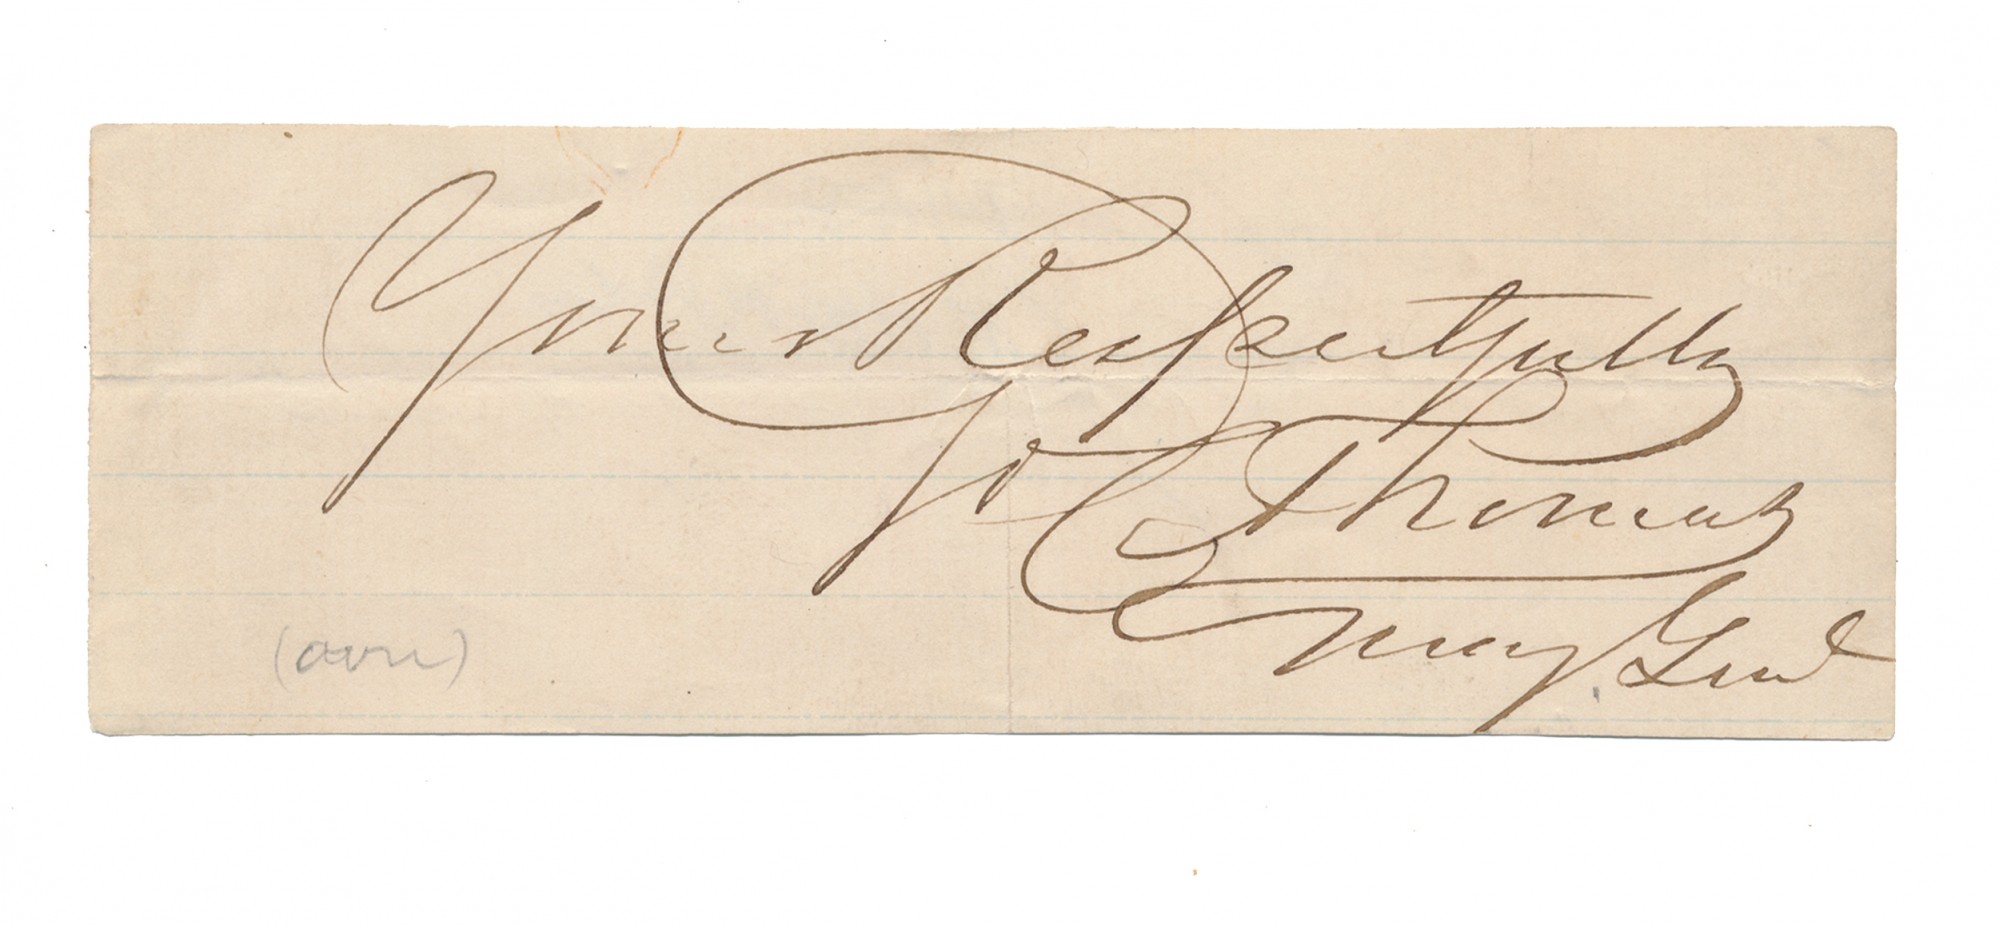 Yours Respectfully
Thomas
Maj. Genl
(over)